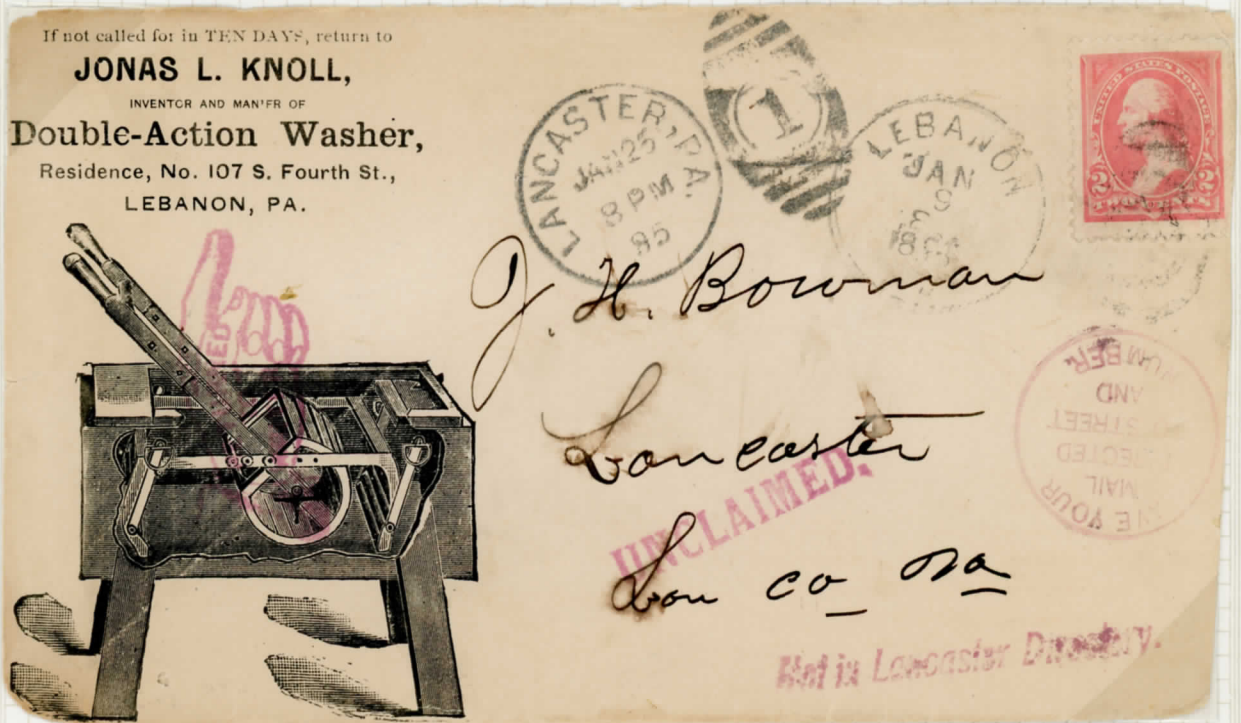 If not called for in TEN DAYS, return to
JONAS L. KNOLL,
INVENTOR AND MAN'FR OF
Double-Action Washer,
Residence, No. 107 S. Fourth St.,
LEBANON, PA.
LANCASTER, PA.
JAN 25
8 PM
95
1
LEBANON
JAN
9
UNITED STATES POSTAGE
2 2
J. H. Bowman
Lancaster
Lan co Pa
UNCLAIMED.
YOUR
MAIL
STREET
AND
NUMBER.
Not in Lancaster Directory.